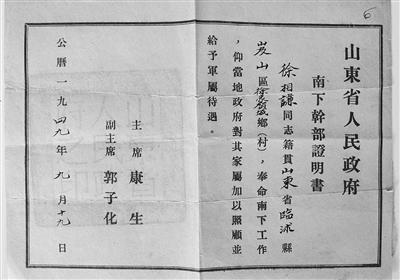 6
山東省人民政府
南下幹部證明書
徐相謙同志籍貫山東省臨沭縣
岌山區鄉(村),奉命南下工作
,仰當地政府對其家屬加以照顧並
給予軍屬待遇。
主席 康生
副主席 郭子化
公曆一九四九年九月十九日